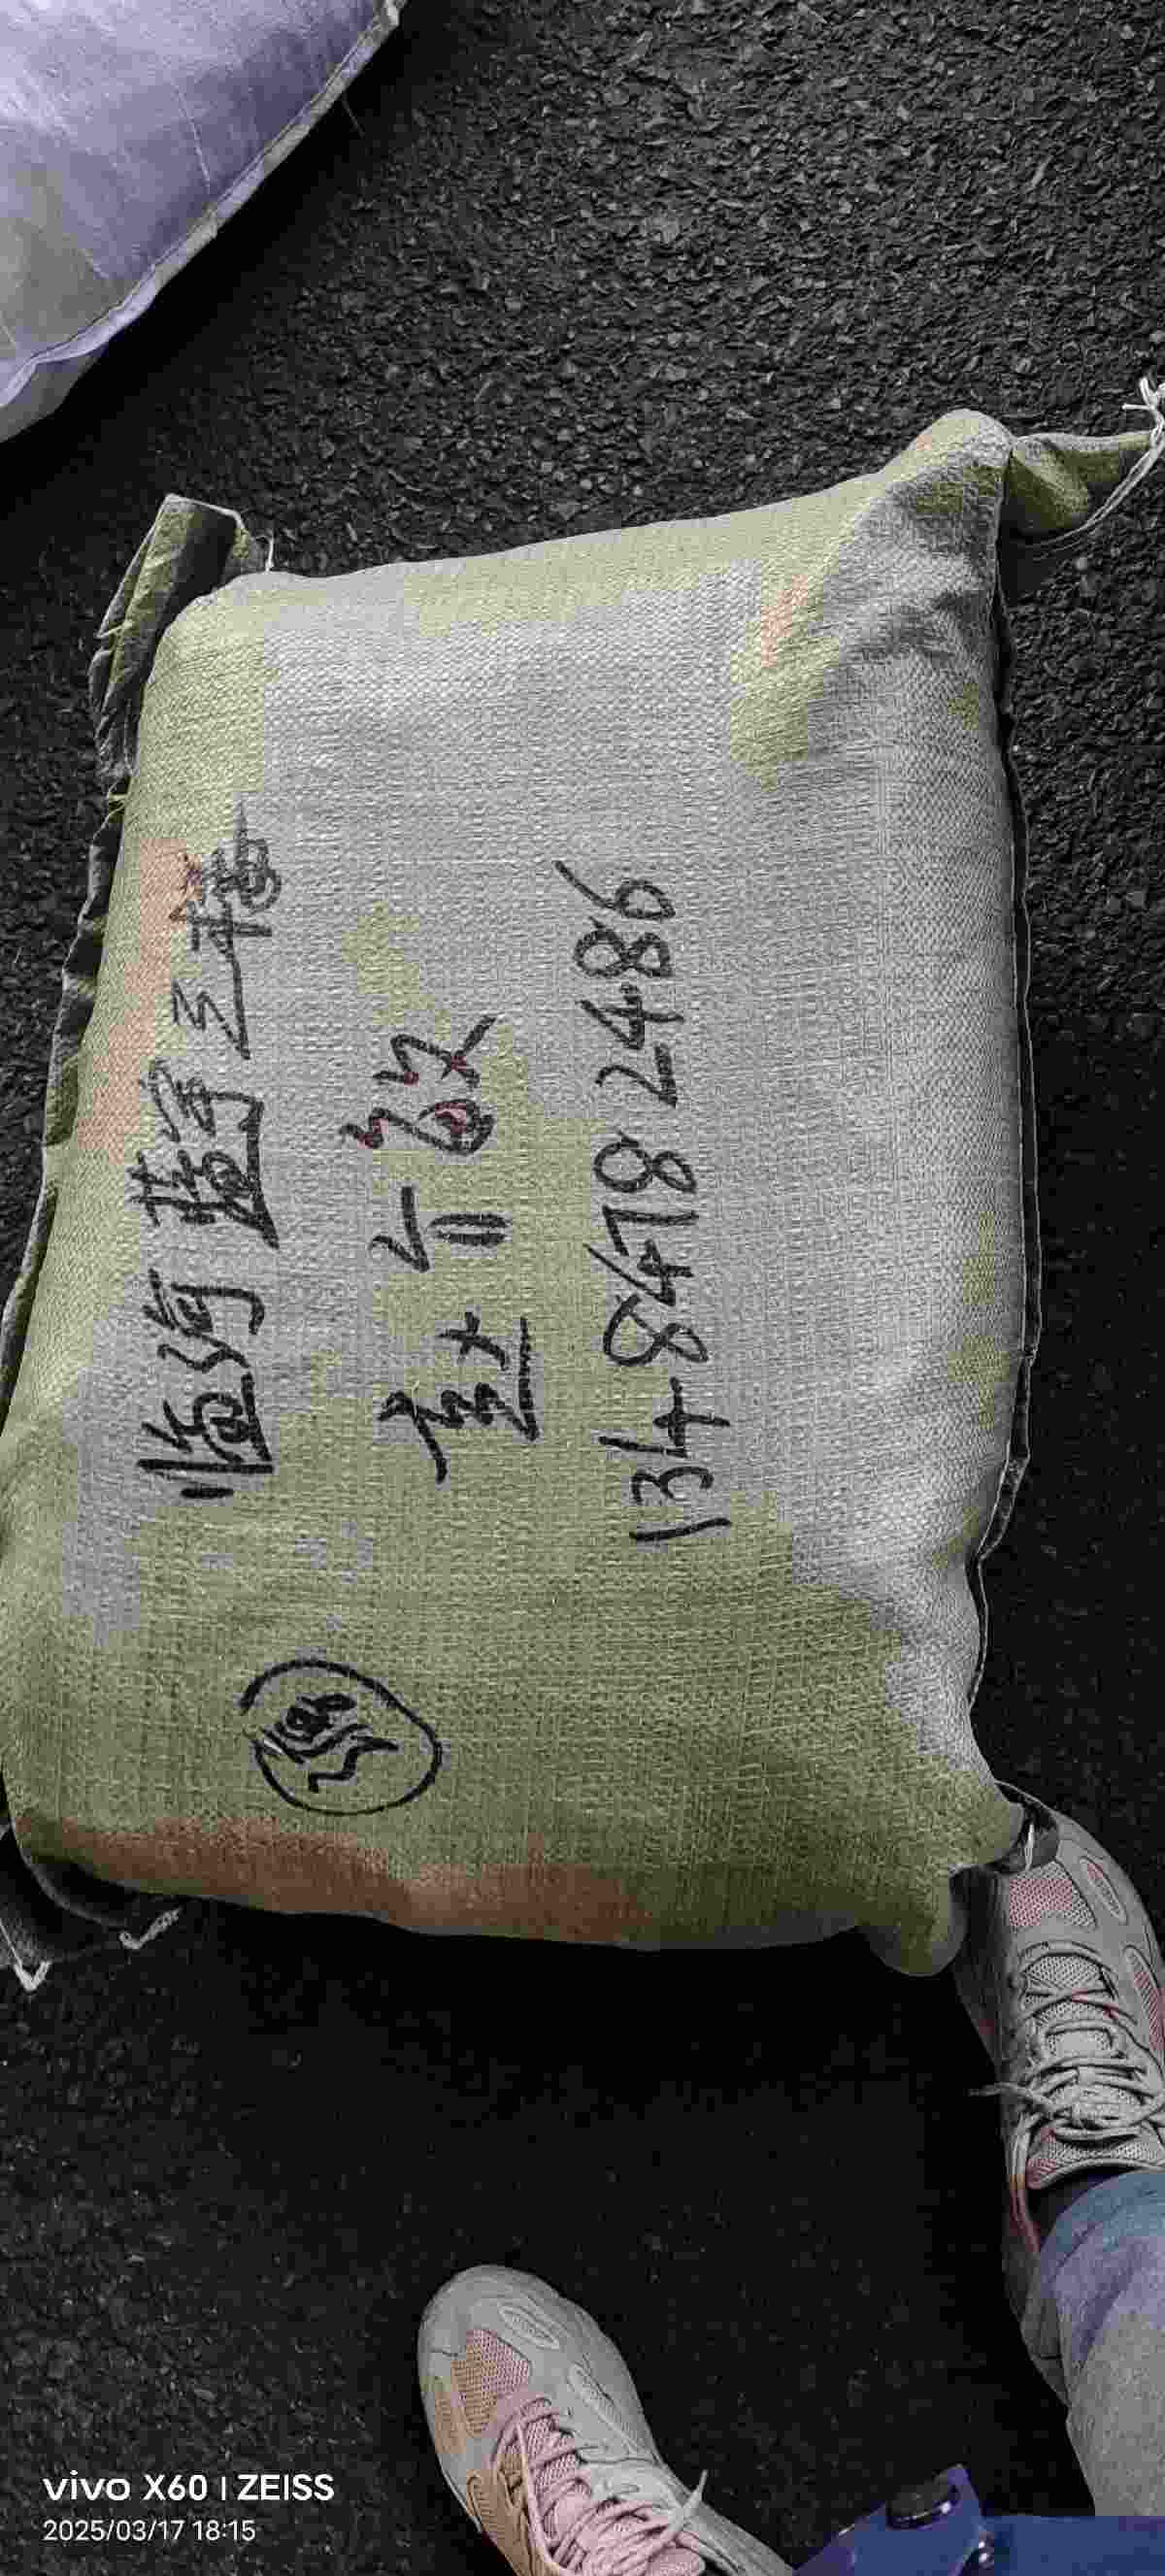 临河蓝宇三楼
134 8478 2486
临
vivo X60 | ZEISS
2025/03/17 18:15